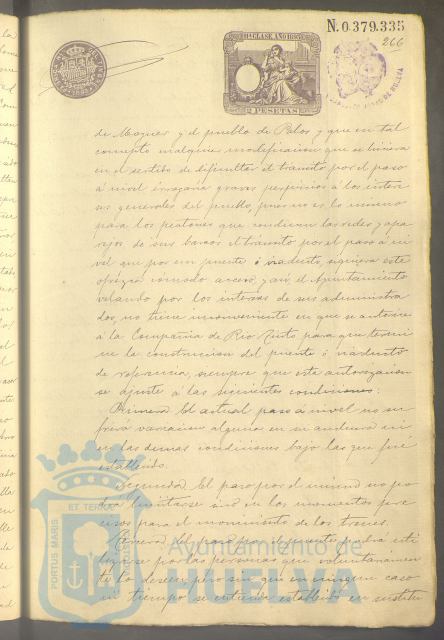 N. 0.379.335
266
11ª CLASE AÑO 18
2 PESETAS
de Moguer y el pueblo de Palos y que en tal
concepto cualquier modificacion que se hiciera
en el sentido de dificultar el transito por el paso
á nivel irrogaria graves perjuicios á los intere
ses generales del pueblo, pues no es lo mismo
para los peatones que conducen las redes y apa
rejos de sus barcos el transito por el paso á ni
vel que por un puente ó viaducto, siquiera este
ofrezca comodo acceso, y así el Ayuntamiento
velando por los intereses de sus administra
dos, no tiene inconveniente en que se autorice
á la Compañia de Rio Tinto para que termi
ne la construccion del puente ó viaducto
de referencia, siempre que esta autorizacion
se ajuste á las siguientes condiciones:
Primera El actual paso á nivel no su
frirá variacion alguna en su anchura ni
en las demas condiciones bajo las que fué
establecido.
Segunda El paso por el mismo no po
drá limitarse sinó en los momentos pre
cisos para el movimiento de los trenes.
Tercera El paso por el puente podrá uti
lizarse por las personas que voluntariamen
te lo deseen, pero sin que en ningun caso
ni tiempo se entienda establecido en sustitu
PORTUS MARIS
ET TERRAE
Ayuntamiento de
HUELVA